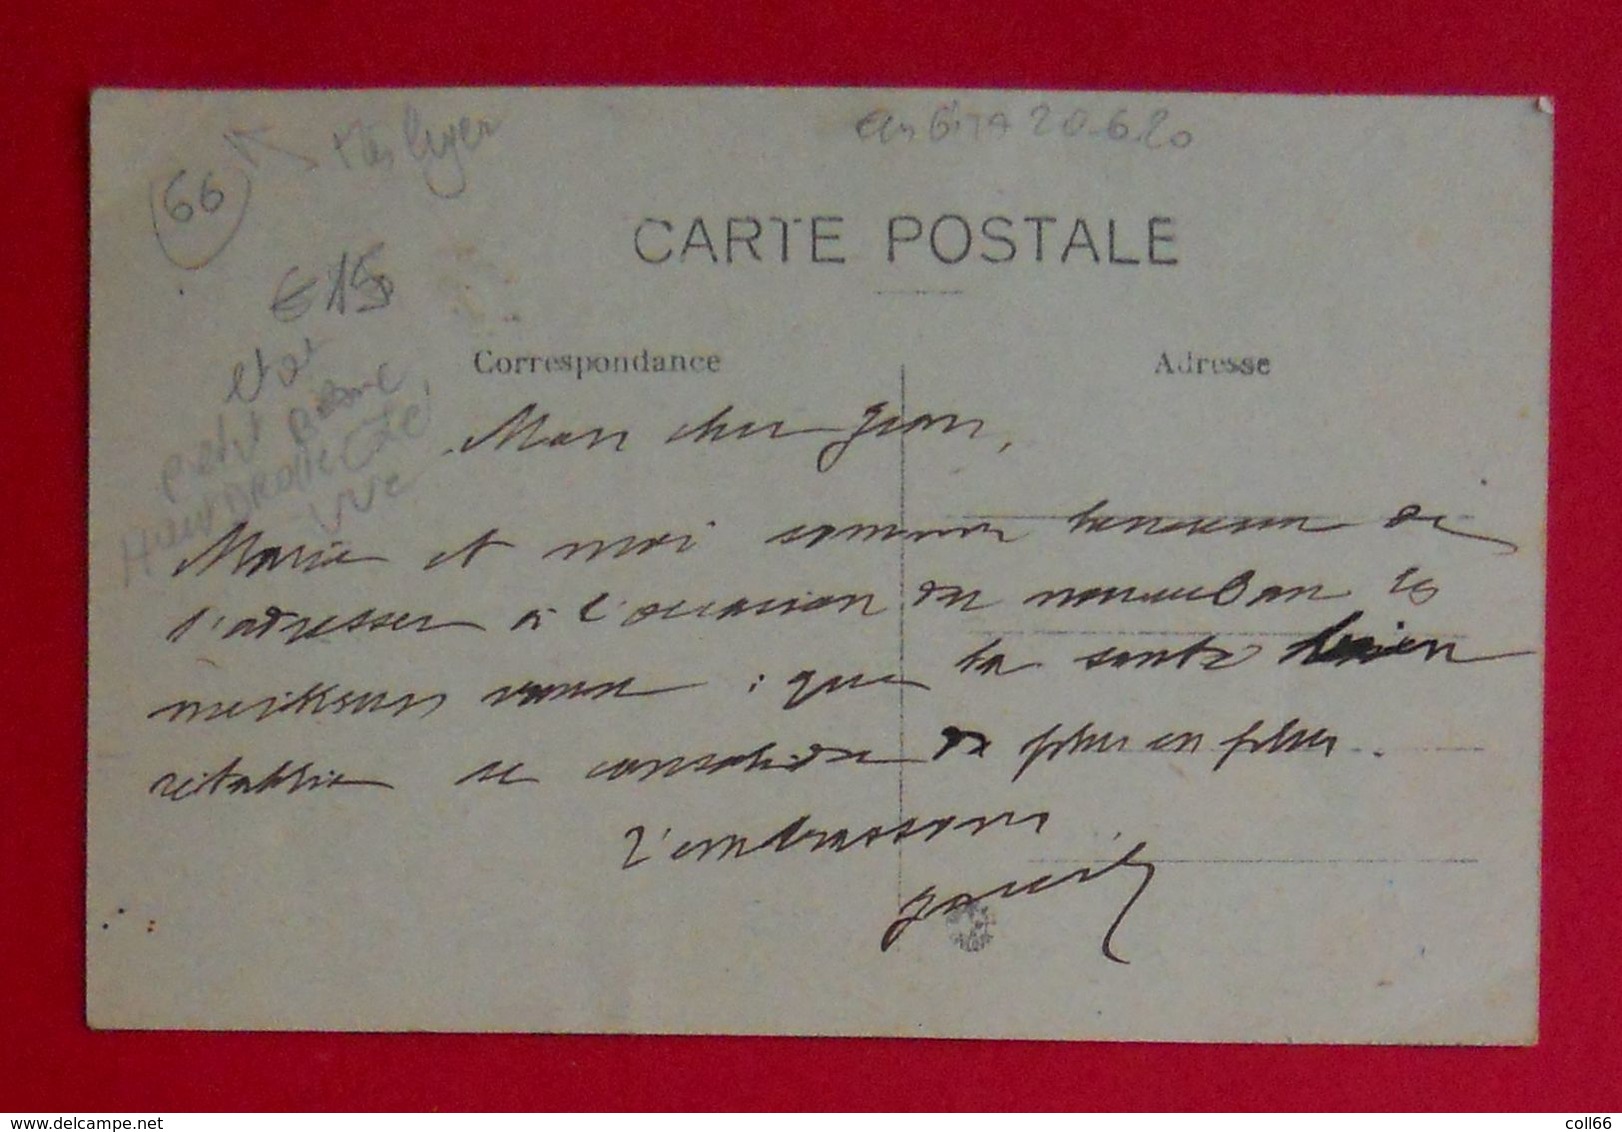 66
€15
etat
petit
Haut droite côté
vue
20.6.20
CARTE POSTALE
Correspondance
Adresse
Mon cher Jean,
Marie et moi sommes heureux de
t'adresser à l'occasion du nouvel an les
meilleurs vœux : que ta santé bien
rétablie se consolide de plus en plus.
T'embrassons
delcampe.net
coll66